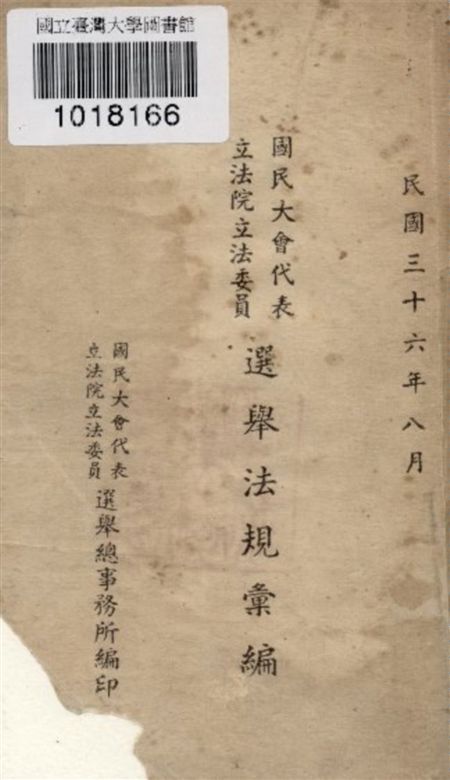 國立臺灣大學圖書館
1018166
民國三十六年八月
國民大會代表
立法院立法委員
選舉法規彙編
國民大會代表
立法院立法委員
選舉總事務所編印